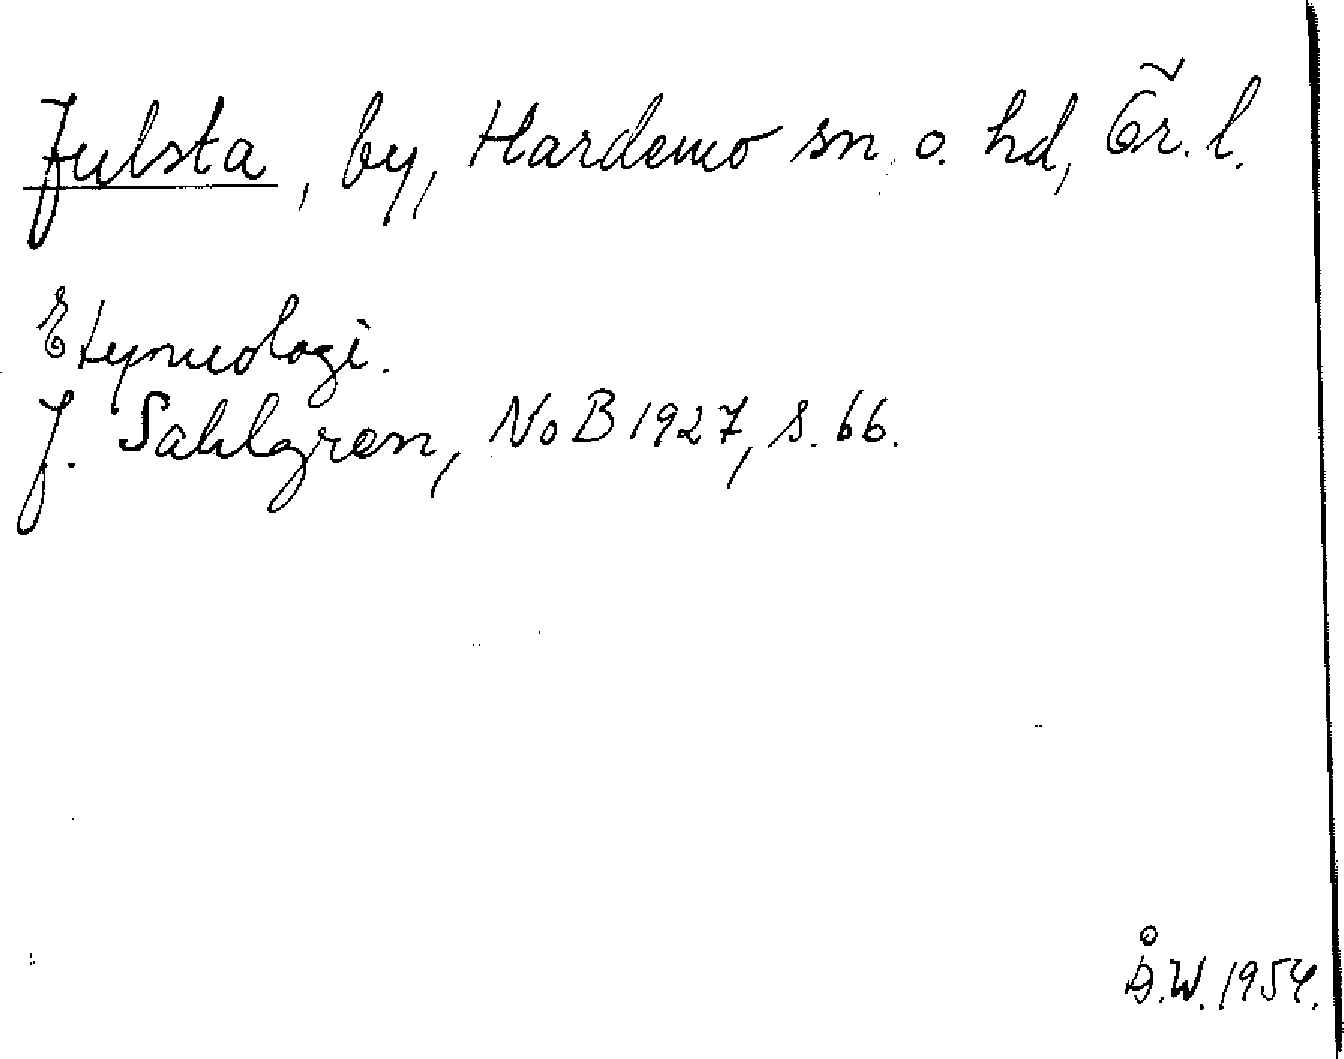 Julsta, by, Hardemo sn. o. hd, Ör. l.
Etymologi.
J. Sahlgren, NoB 1927, s. 66.
Å.W. 1954.